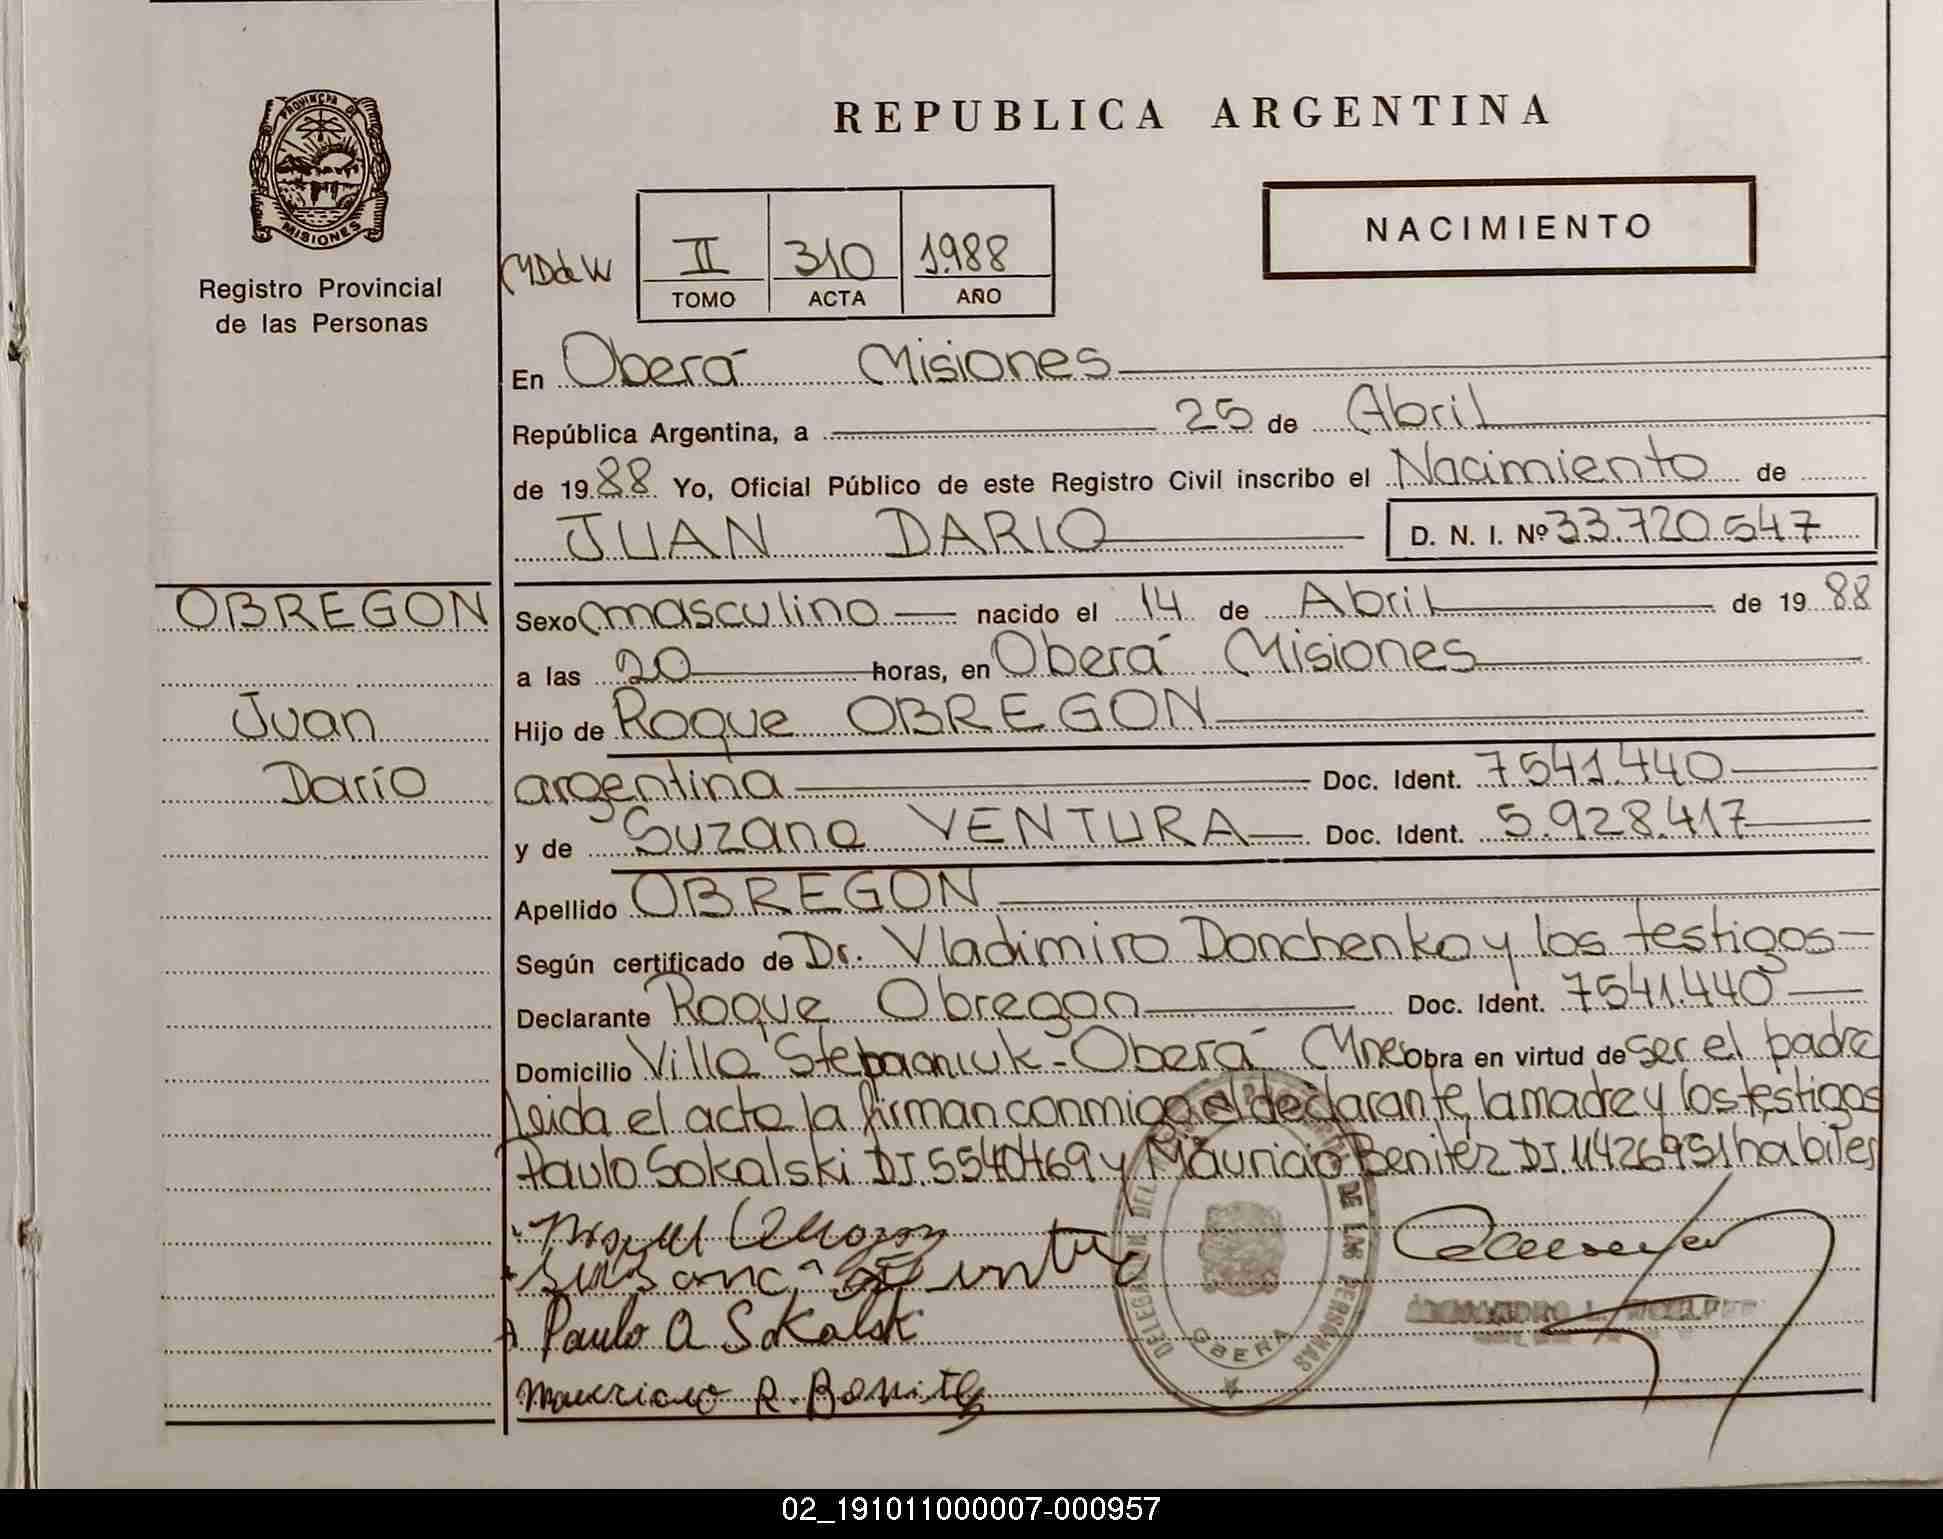 REPUBLICA ARGENTINA
PROVINCIA DE
MISIONES
Registro Provincial
de las Personas
NACIMIENTO
MD de W
II 310 1988
TOMO ACTA AÑO
En Oberá Misiones
República Argentina, a 25 de Abril
de 1988 Yo, Oficial Público de este Registro Civil inscribo el Nacimiento de
JUAN DARIO D. N. I. Nº 33.720.547
OBREGON
Juan
Darío
Sexo masculino nacido el 14 de Abril de 1988
a las 20 horas, en Oberá Misiones
Hijo de Roque OBREGON
argentina Doc. Ident. 7541.440
y de Suzana VENTURA Doc. Ident. 5.928.417
Apellido OBREGON
Según certificado de Dr. Vladimiro Donchenko y los testigos
Declarante Roque Obregon Doc. Ident. 7541.440
Domicilio Villa Stepaniuk - Oberá Mnes Obra en virtud de ser el padre
Leida el acta la firman conmigo el declarante, la madre y los testigos
Paulo Sokalski DI. 5540469 y Mauricio Benitez DI. 11426951 habiles
Paulo A Sokalsk
Mauricio R. Benitez
DE LAS PERSONAS
OBERA
02_191011000007-000957